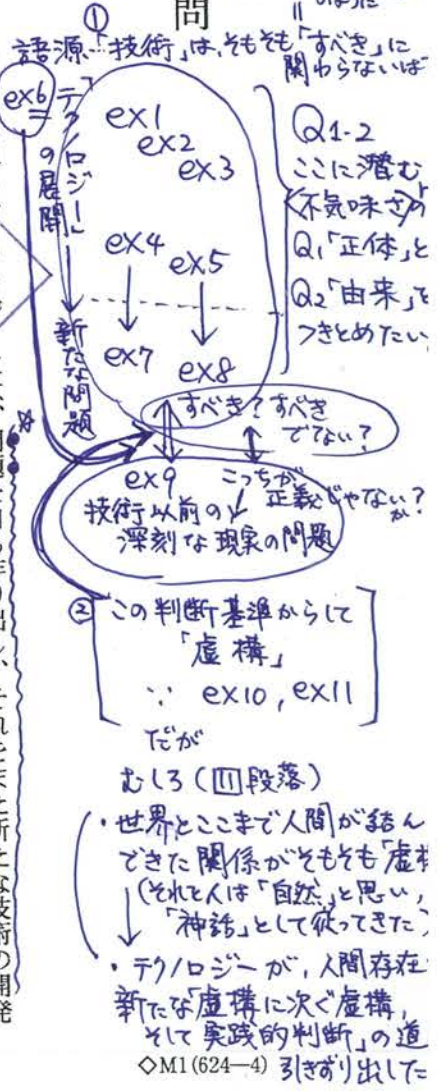 問
①
〃 のように
語源…「技術」は、そもそも「すべき」に
関わらないば
ex6
「テクノロジー」
の展開
新たな問題
ex1
ex2
ex3
ex4
ex5
ex7
ex8
Q1-2
ここに潜む
〈不気味さ〉の
Q1「正体」と
Q2「由来」を
つきとめたい
すべき?すべき
でない?
ex9
こっちが
正義じゃないか?
技術以前の
深刻な現実の問題
②この判断基準からして
「虚構」
∵ ex10, ex11
だが
むしろ(⑪段落)
・世界とここまで人間が結ん
できた関係がそもそも「虚構
(それと人は「自然」と思い、
「神話」として従ってきた)
・テクノロジーが、人間存在
新たな「虚構に次ぐ虚構、
そして実践的判断」の道
引きずり出した
◇M1(624—4)
問題を自ら作り出し、それをまた新たな技術の開発